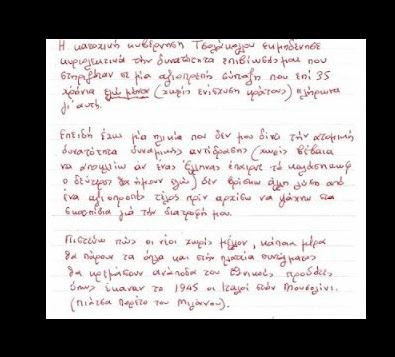 Η κατοχική κυβέρνηση Τσολάκογλου εκμηδένισε
κυριολεκτικά την δυνατότητα επιβίωσής μου που
στηριζόταν σε μία αξιοπρεπή σύνταξη που επί 35
χρόνια εγώ μόνον (χωρίς ενίσχυση κράτους) πλήρωνα
γι' αυτή.
Επειδή έχω μία ηλικία που δεν μου δίνει την ατομική
δυνατότητα δυναμικής αντίδρασης (χωρίς βέβαια
να αποκλείω αν ένας έλληνας έπαιρνε το καλάσνικωφ
ο δεύτερος θα ήμουν εγώ) δεν βρίσκω άλλη λύση από
ένα αξιοπρεπές τέλος πριν αρχίσω να ψάχνω στα
σκουπίδια για την διατροφή μου.
Πιστεύω πως οι νέοι χωρίς μέλλον, κάποια μέρα
θα πάρουν τα όπλα και στην πλατεία συντάγματος
θα κρεμάσουν ανάποδα τους εθνικούς προδότες
όπως έκαναν το 1945 οι Ιταλοί στον Μουσολίνι.
(πιάτσα Πορέτο του Μιλάνου).